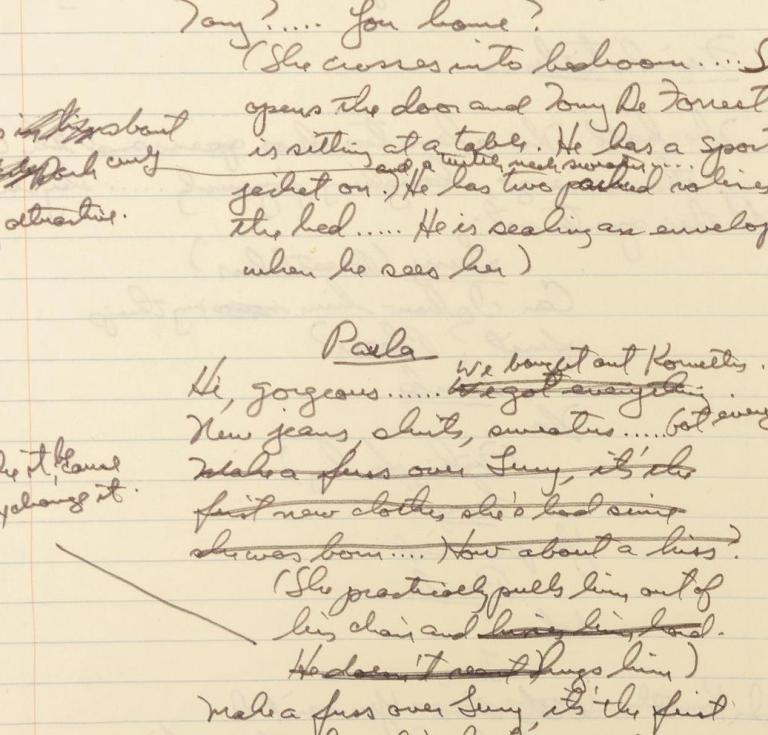 Tony?..... You home?
(She crosses into bedroom.... S
opens the door and Tony De Forrest
is sitting at a table. He has a spor
and a turtle neck sweater.....
jacket on.) He has two packed valises
the bed..... He is sealing an envelop
when he sees her)
about
Dark curly
attractive.
Paula
We bought out Korvettes.
Hi, gorgeous...... We got everything.
New jeans, shirts, sweaters..... Got every
Make a fuss over Lucy, it's the
first new clothes she's had since
she was born.... How about a kiss?
(She practically pulls him out of
his chair and kisses him hard.
He doesn't react) hugs him)
Make a fuss over Lucy, it's the first
it, 'cause
exchange it.